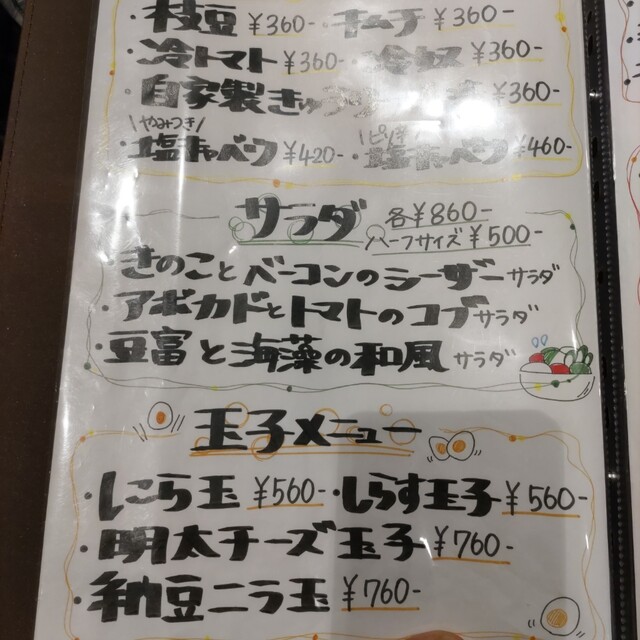 ・枝豆 ¥360- ・キムチ ¥360-
・冷トマト ¥360- ・冷奴 ¥360-
・自家製きゅうり ¥360-
\やみつき/
・塩キャベツ ¥420- ・塩キャベツ ¥460-
サラダ 各¥860-
ハーフサイズ¥500-
・きのことベーコンのシーザーサラダ
・アボカドとトマトのコブサラダ
・豆富と海藻の和風サラダ
玉子メニュー
・にら玉 ¥560- ・しらす玉子 ¥560-
・明太チーズ玉子 ¥760-
・納豆ニラ玉 ¥760-